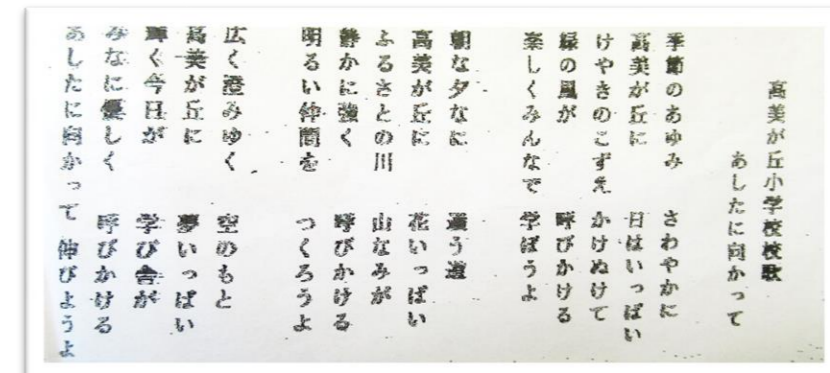 高美が丘小学校校歌
あしたに向かって
季節のあゆみ　さわやかに
高美が丘に　日はいっぱい
けやきのこずえ　かけぬけて
緑の風が　呼びかける
楽しくみんなで　学ぼうよ
朝な夕なに　通う道
高美が丘に　花いっぱい
ふるさとの川　山なみが
静かに強く　呼びかける
明るい仲間を　つくろうよ
広く澄みゆく　空のもと
高美が丘に　夢いっぱい
輝く今日が　学び舎が
みなに優しく　呼びかける
あしたに向かって　伸びようよ